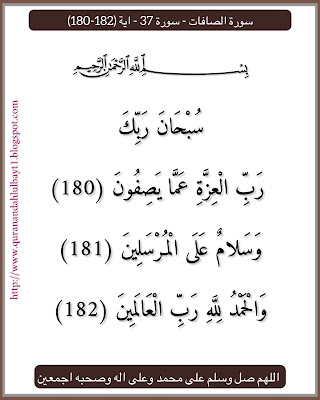 سورة الصافات - سورة 37 - اية (182-180)
بِسْمِ اللَّهِ الرَّحْمَنِ الرَّحِيمِ
سُبْحَانَ رَبِّكَ
رَبِّ الْعِزَّةِ عَمَّا يَصِفُونَ (180)
وَسَلامٌ عَلَى الْمُرْسَلِينَ (181)
وَالْحَمْدُ لِلَّهِ رَبِّ الْعَالَمِينَ (182)
اللهم صل وسلم على محمد وعلى اله وصحبه اجمعين
http://www.quranandahlulbayt1.blogspot.com